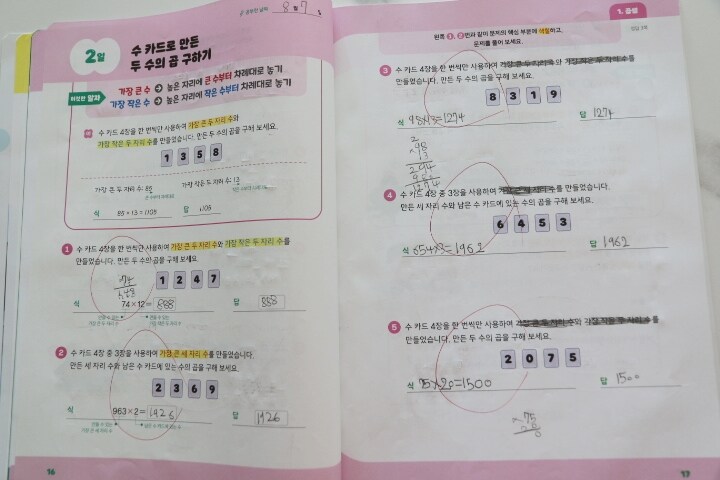 공부한 날짜 8월 7일
2일
수 카드로 만든
두 수의 곱 구하기
이것만 알자
가장 큰 수 → 높은 자리에 큰 수부터 차례대로 놓기
가장 작은 수 → 높은 자리에 작은 수부터 차례대로 놓기
예 수 카드 4장을 한 번씩만 사용하여 가장 큰 두 자리 수와
가장 작은 두 자리 수를 만들었습니다. 만든 두 수의 곱을 구해 보세요.
1 3 5 8
가장 큰 두 자리 수: 85
가장 작은 두 자리 수: 13
식 85×13=1105
답 1105
1 수 카드 4장을 한 번씩만 사용하여 가장 큰 두 자리 수와 가장 작은 두 자리 수를
만들었습니다. 만든 두 수의 곱을 구해 보세요.
1 2 4 7
식 74×12=888
답 888
만들 수 있는
가장 큰 두 자리 수
만들 수 있는
가장 작은 두 자리 수
2 수 카드 4장 중 3장을 사용하여 가장 큰 세 자리 수를 만들었습니다.
만든 세 자리 수와 남은 수 카드에 있는 수의 곱을 구해 보세요.
2 3 6 9
식 963×2=1926
답 1926
만들 수 있는
가장 큰 세 자리 수
남은 수 카드에 있는 수
16
1. 곱셈
정답 3쪽
왼쪽 1, 2번과 같이 문제의 핵심 부분에 색칠하고,
문제를 풀어 보세요.
3 수 카드 4장을 한 번씩만 사용하여 가장 큰 두 자리 수와 가장 작은 두 자리 수를
만들었습니다. 만든 두 수의 곱을 구해 보세요.
8 3 1 9
식 98×13=1274
답 1274
2
98
×13
294
98
1274
4 수 카드 4장 중 3장을 사용하여 가장 큰 세 자리 수를 만들었습니다.
만든 세 자리 수와 남은 수 카드에 있는 수의 곱을 구해 보세요.
6 4 5 3
식 654×3=1962
답 1962
5 수 카드 4장을 한 번씩만 사용하여 가장 큰 두 자리 수와 가장 작은 두 자리 수를
만들었습니다. 만든 두 수의 곱을 구해 보세요.
2 0 7 5
식 75×20=1500
답 1500
×75
17